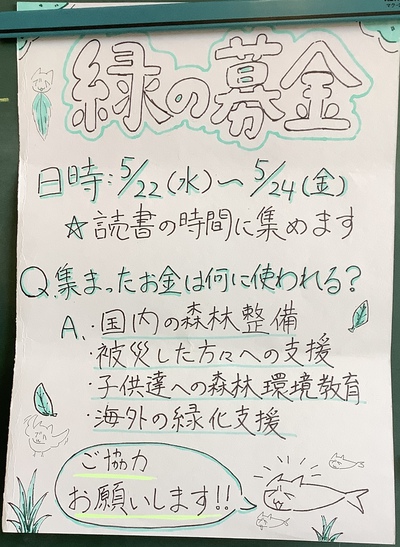 緑の募金
日時:5/22(水)〜5/24(金)
☆読書の時間に集めます
Q.集まったお金は何に使われる?
A.・国内の森林整備
・被災した方々への支援
・子供達への森林環境教育
・海外の緑化支援
ご協力
お願いします!!